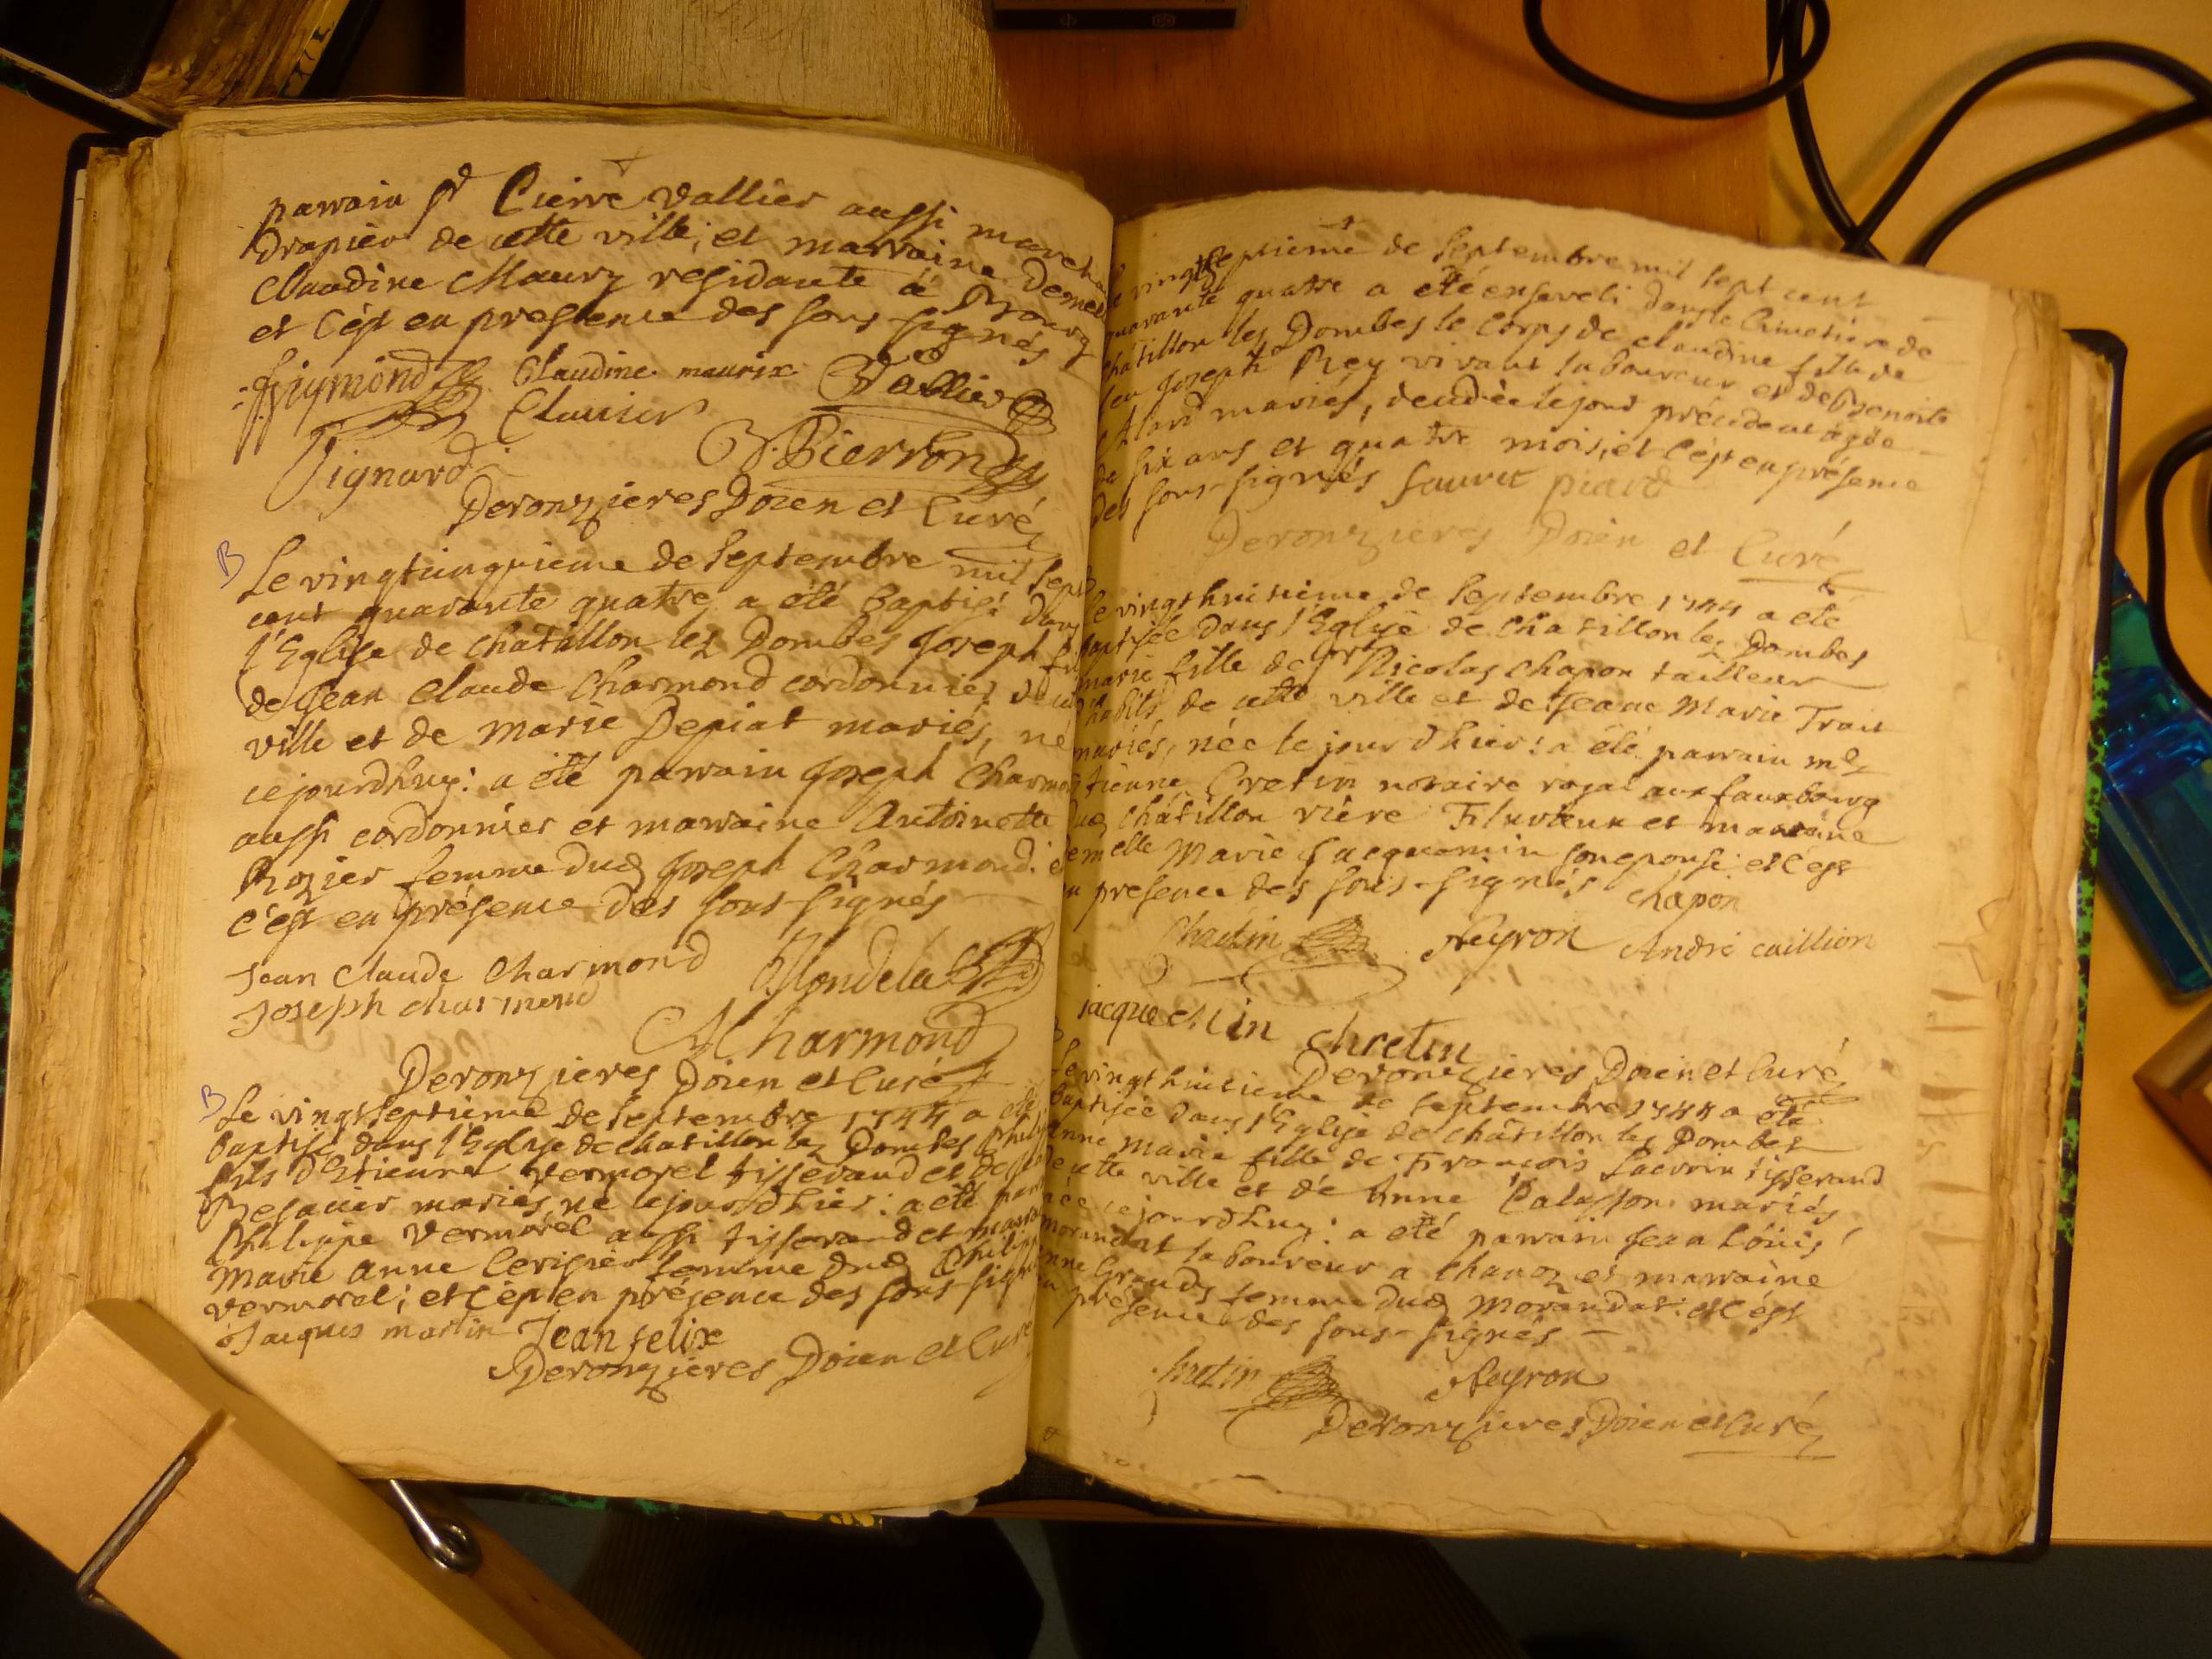 parrain sr Pierre Vallier aussi march
Drapier de cette ville; et marraine Demel
Claudine Maury residante à Bourg
et c'est en presence des sous-signés
Claudine maurix Vallier
Clavier
Tignard Bierron
Deronzieres Doien et Curé
B Le vingtcinquieme de Septembre mil sept
cent quarante quatre a été Baptisé dans
l'Eglise de Chatillon les Dombes Joseph fils
de Jean Claude Charmond cordonnier de cette
ville et de Marie Depiat mariés, né
cejourdhuy: a été parrain Joseph Charmond
aussi cordonnier et marraine Antoinette
Rozier femme dud Joseph Charmond: et
c'est en présence des sous-signés
Jean Claude Charmond Mondela
Joseph charmond
Charmond
Deronzieres Doien et Curé
B Le vingtseptieme de Septembre 1744 a été
baptisé dans l'Eglise de chatillon les Dombes Philippe
fils d'Etienne Vermorel tisserand et de
mariés, né lejourdhier: a été parrain
Philippe Vermorel aussi tisserand et marraine
Marie Anne Cerisier femme dud Philippe
Vermorel; et c'est en présence des sous-signés
Jacques martin Jean felix
Deronzieres Doien et Curé
Le vingtseptieme de Septembre mil sept cent
quarante quatre a été enseveli dans le Cimetiere de
chatillon les Dombes le corps de claudine fille de
feu Joseph Rey vivant laboureur et de Benoite
mariés, decedée lejour précédent agée
de six ans et quatre mois; et c'est en présence
des sous-signés fauvet piard
Deronzieres Doien et Curé
Le vingthuitieme de Septembre 1744 a été
baptisée dans l'Eglise de Chatillon les Dombes
marie fille de sr Nicolas Chapon tailleur
d'habits de cette ville et de Jeane Marie Trait
mariés, née le jour d'hier: a été parrain me
Etienne Cretin notaire royal aux fauxbourg
dud Chatillon riére Fluvieux et marraine
demelle Marie Jacquemin son epouse: et c'est
en presence des sous-signés chapon
Chretin Neyron André caillion
jacquemin chretin
Deronzieres Doien et Curé
Le vingthuitieme de Septembre 1744 a été
baptisée dans l'Eglise de chatillon les Dombes
Anne Marie fille de François Lacroix tisserand
de cette ville et de Anne mariés
née cejourdhuy: a été parrain Jean Loüis
Morandat laboureur a Chanoz et marraine
Anne Grands femme dud Morandat: et c'est
en présence des sous-signés
Chretin Neyron
Deronzieres Doien et Curé